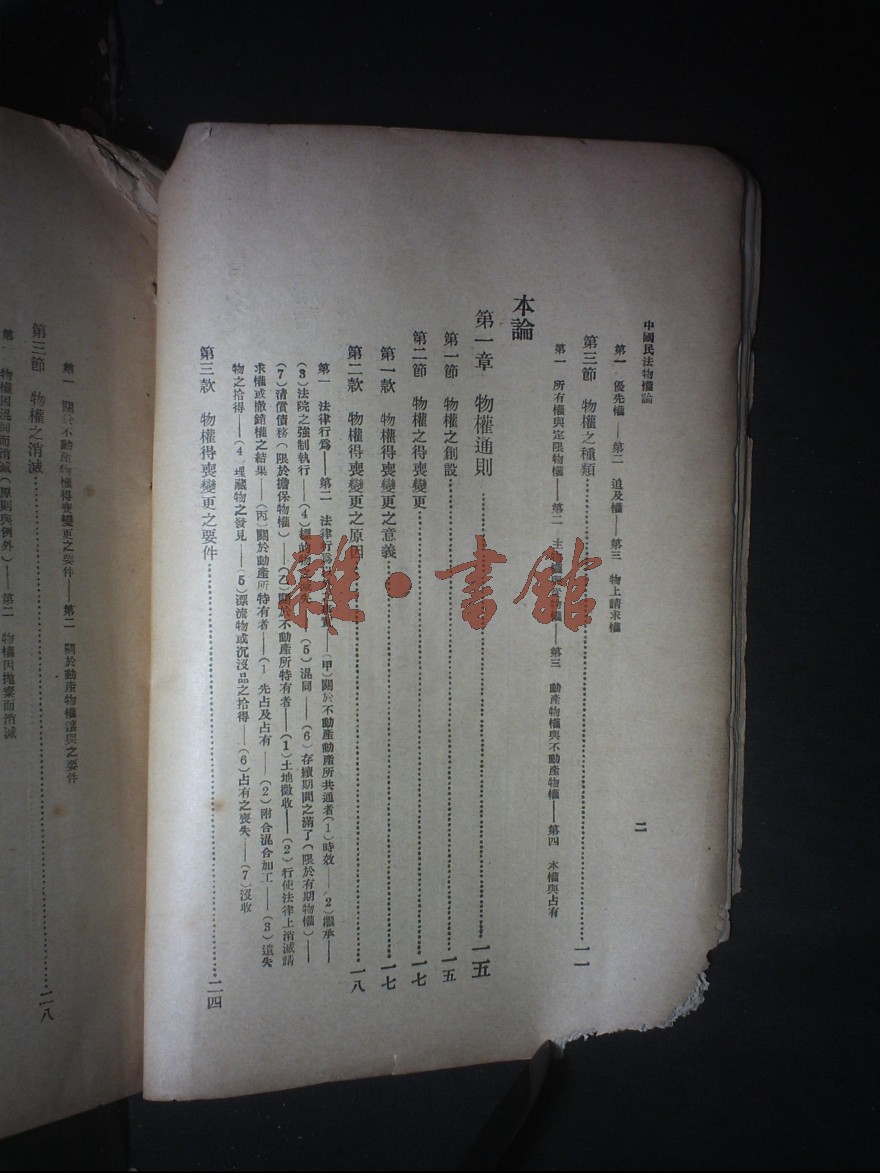 中國民法物權論
二
第一 優先權——第二 追及權——第三 物上請求權
第三節 物權之種類……一一
第一 所有權與定限物權——第二 主物權與從物權——第三 動產物權與不動產物權——第四 本權與占有
本論
第一章 物權通則……一五
第一節 物權之創設……一五
第二節 物權之得喪變更……一七
第一款 物權得喪變更之意義……一七
第二款 物權得喪變更之原因……一八
第一 法律行為——第二 法律行為——(甲)關於不動產動產所共通者(1)時效——(2)繼承——
(3)法院之強制執行——(4)標的物——(5)混同——(6)存續期間之滿了(限於有期物權)——
(7)清償債務(限於擔保物權)——(乙)關於不動產所特有者——(1)土地徵收——(2)行使法律上消滅請
求權或撤銷權之結果——(丙)關於動產所特有者——(1 先占及占有——(2)附合混合加工——(3)遺失
物之拾得——(4)埋藏物之發見——(5)漂流物或沉沒品之拾得——(6)占有之喪失——(7)沒收
第三款 物權得喪變更之要件……二四
第一 關於不動產物權得喪變更之要件——第二 關於動產物權讓與之要件
第三節 物權之消滅……二八
第一 物權因混同而消滅(原則與例外)——第二 物權因拋棄而消滅
雜·書館